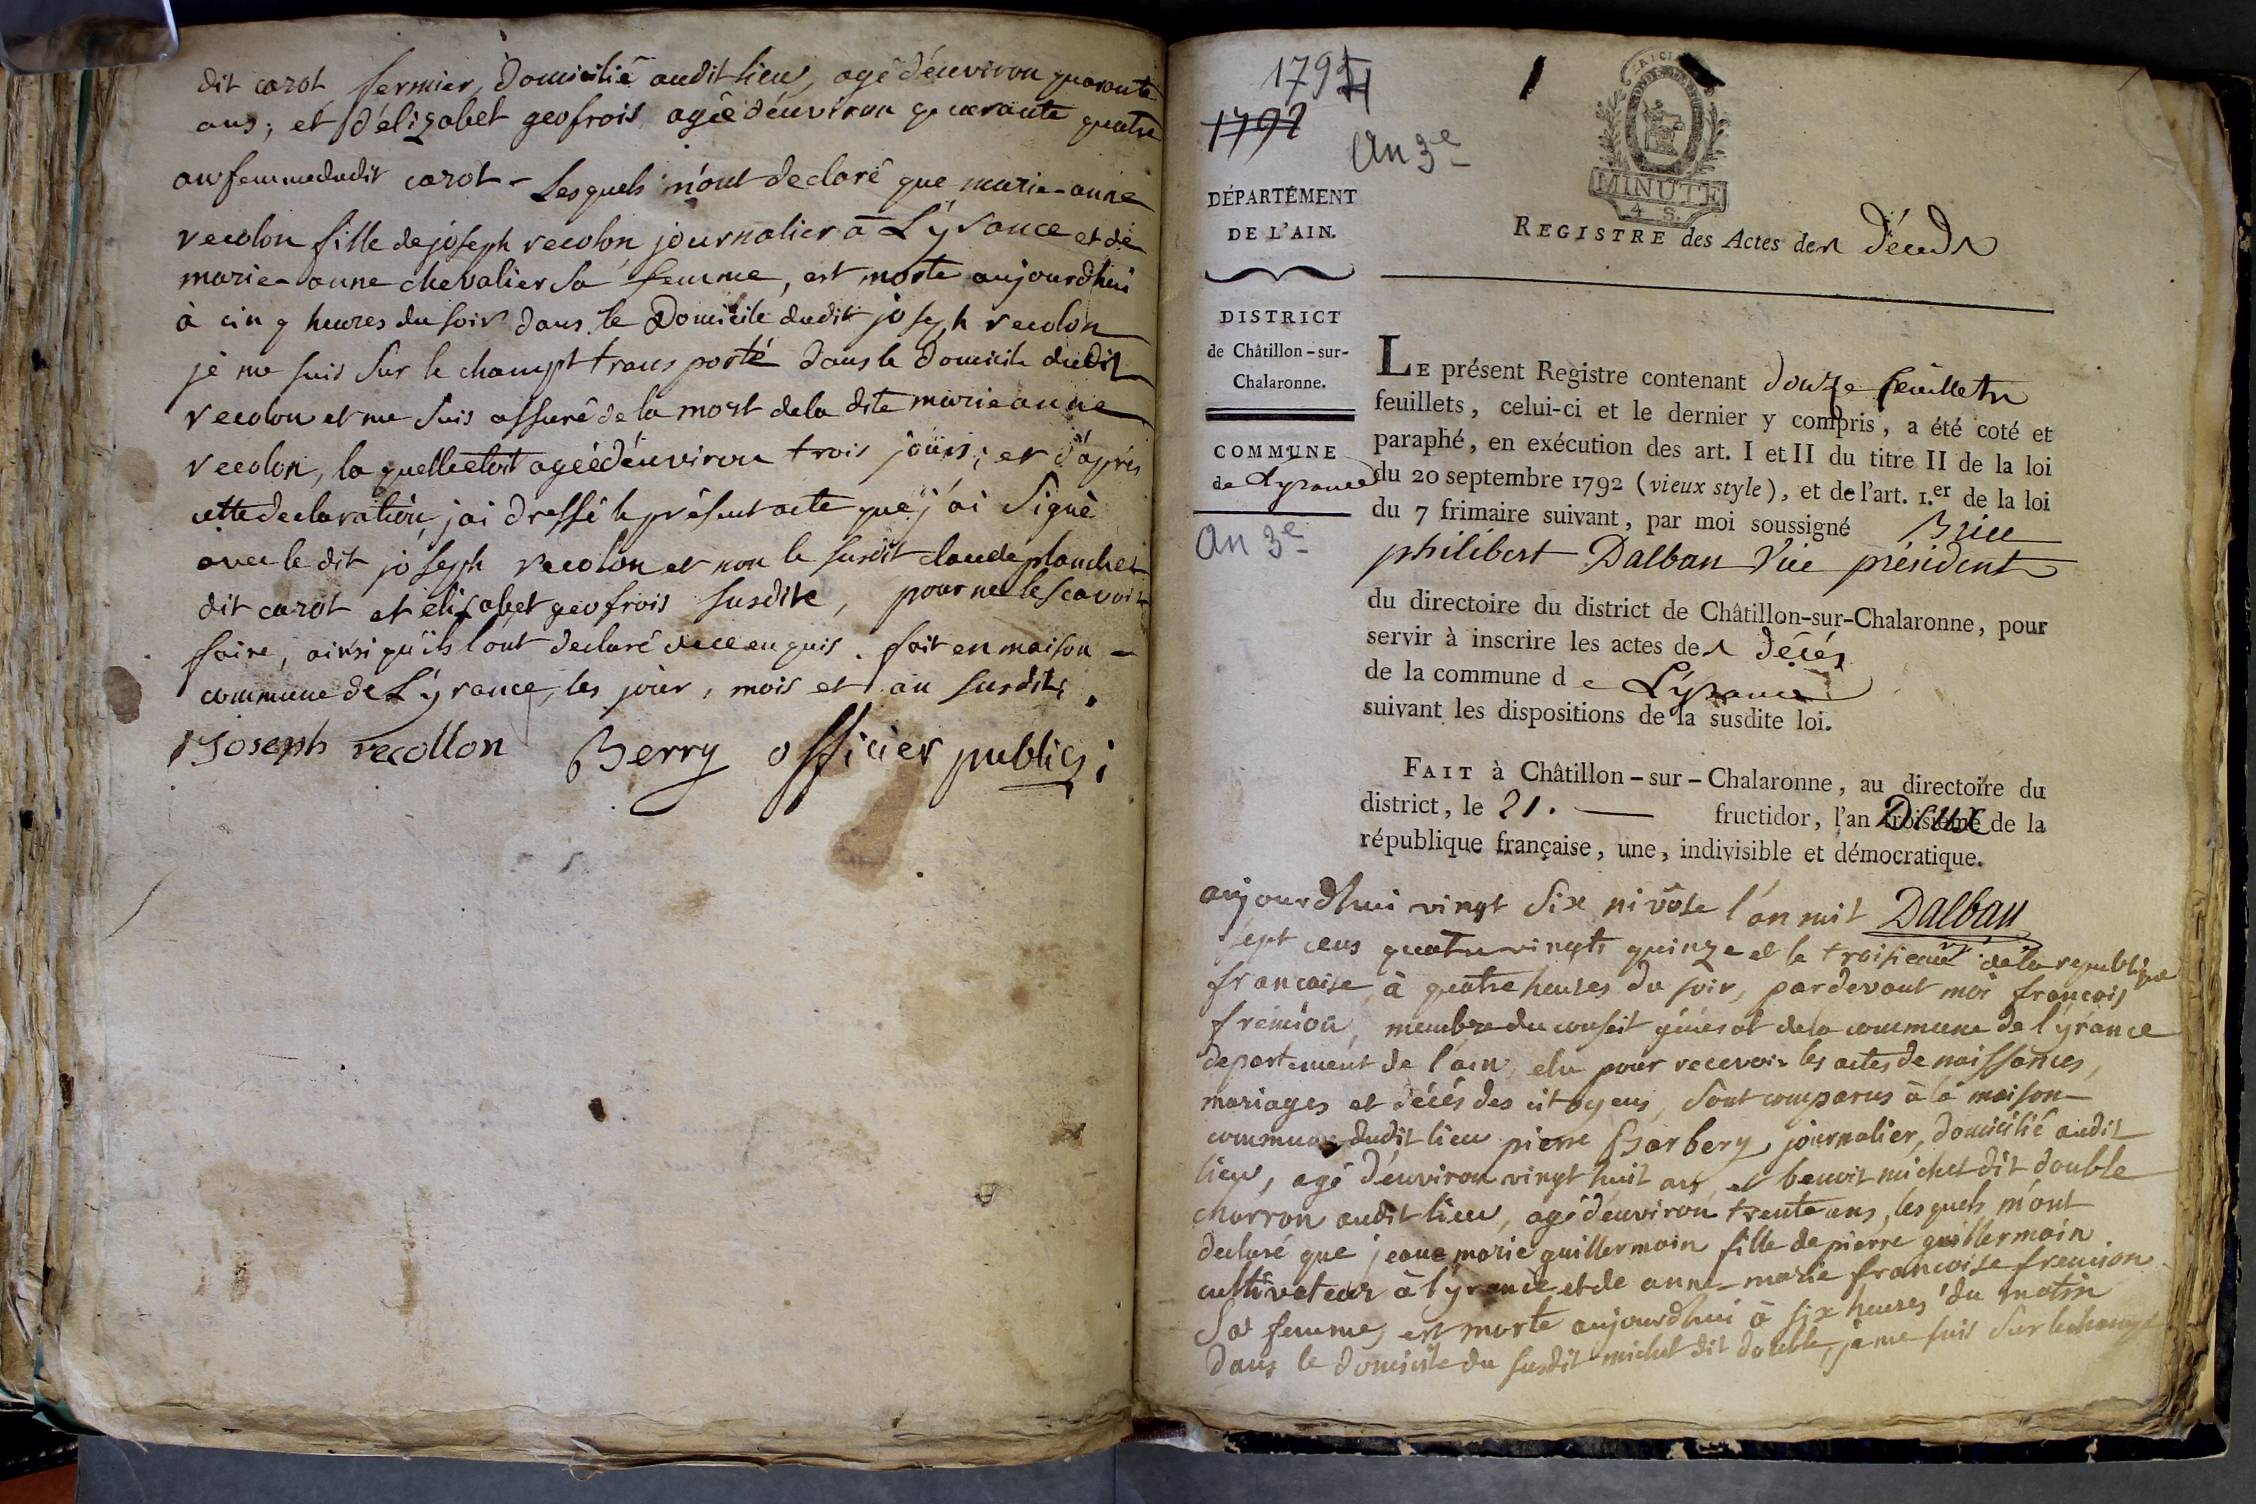 dit carot fermier, domicilié audit lieu, agé d'énviron quarante
ans, et d'élizabet geofrois agée d'énviron quarante quatre
an femme dudit carot - Lesquels m'ont declaré que marie-anne
recolon fille de joseph recolon, journalier à L'ÿrance et de
marie-anne chevalier sa femme, est morte aujourdhui
à cinq heures du soir dans le domicile dudit joseph recolon
je me suis sur le champt transporté dans le domicile dudit
recolon et me suis assuré de la mort de la dite marie anne
recolon, la quelle etoit agée d'énviron trois jours; et d'après
cette declaration, j'ai dressé le présent acte que j'ai signé
avec le dit joseph recolon et non le susdit claude planchet
dit carot et elisabet geofrois susdite, pour ne le scavoir
faire, ainsi qu'ils l'ont declaré de ce enquis. fait en maison -
commune de L'ÿrance, les jour, mois et an susdits.
Joseph recollon Berry officier public;
1794
1792
An 3e
MINUTE
4 S.
DÉPARTEMENT
DE L'AIN.
DISTRICT
de Châtillon-sur-
Chalaronne.
COMMUNE
de Lÿrance
An 3e
REGISTRE des Actes des décéds
LE présent Registre contenant douze feuillets
feuillets, celui-ci et le dernier y compris, a été coté et
paraphé, en exécution des art. I et II du titre II de la loi
du 20 septembre 1792 (vieux style), et de l'art. 1.er de la loi
du 7 frimaire suivant, par moi soussigné Brice
philibert Dalban Vice président
du directoire du district de Châtillon-sur-Chalaronne, pour
servir à inscrire les actes des décés
de la commune de Lÿrance
suivant les dispositions de la susdite loi.
FAIT à Châtillon-sur-Chalaronne, au directoire du
district, le 21. fructidor, l'an Deux de la
république française, une, indivisible et démocratique.
Dalban
aujourdhui vingt six nivôse l'an mil
sept cens quatre vingts quinze et le troisieme de la republique
francaise, à quatre heures du soir, pardevant moi françois
fremion, membre du conseil général de la commune de l'ÿrance
departement de l'ain, elu pour recevoir les actes de naissances,
mariages et décés des citoyens, sont comparus à la maison -
commune dudit lieu pierre Barbery, journalier, domicilié audit
lieu, agé d'énviron vingt huit ans, et benoit michel dit double
charron audit lieu, agé d'énviron trente ans, lesquels m'ont
declaré que jeane marie guillermain fille de pierre guillermain
cultivateur à l'ÿrance et de anne-marie francoise fremion
sa femme, est morte aujourdhui à six heures du matin
dans le domicile du susdit michel dit double, je me suis sur le champt